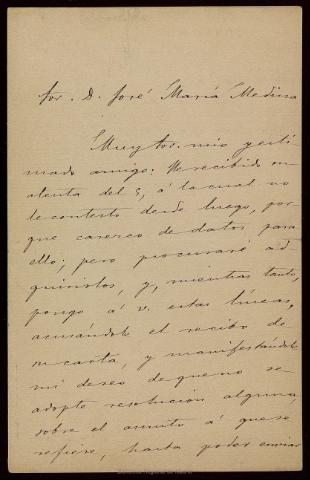 Sor. D. José María Medina
Muy sor. mio y esti-
mado amigo: He recibido su
atenta del 5, á la cual no
le contesto desde luego, por-
que carezco de datos para
ello; pero procuraré ad-
quirirlos, y, mientras tanto,
pongo á v. estas líneas,
acusándole el recibo de
su carta, y manifestándole
mi deseo de que no se
adopte resolucion alguna,
sobre el asunto á que se
refiere, hasta poder enviar